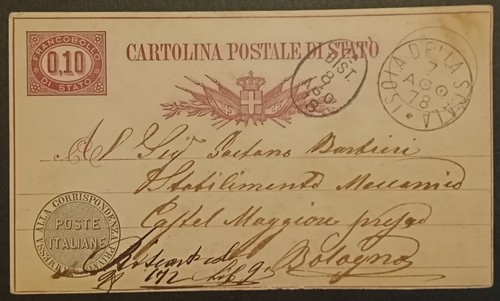 FRANCOBOLLO
0.10
DI STATO
CARTOLINA POSTALE DI STATO
DIST.
8
ISOLA DELLA SCALA
7
AGO
78
Al Sig Gaetano Barbieri
Stabilimento Meccanico
Castel Maggiore presso
Bologna
AMMESSA ALLA CORRISPONDENZA PRIVATA
POSTE
ITALIANE